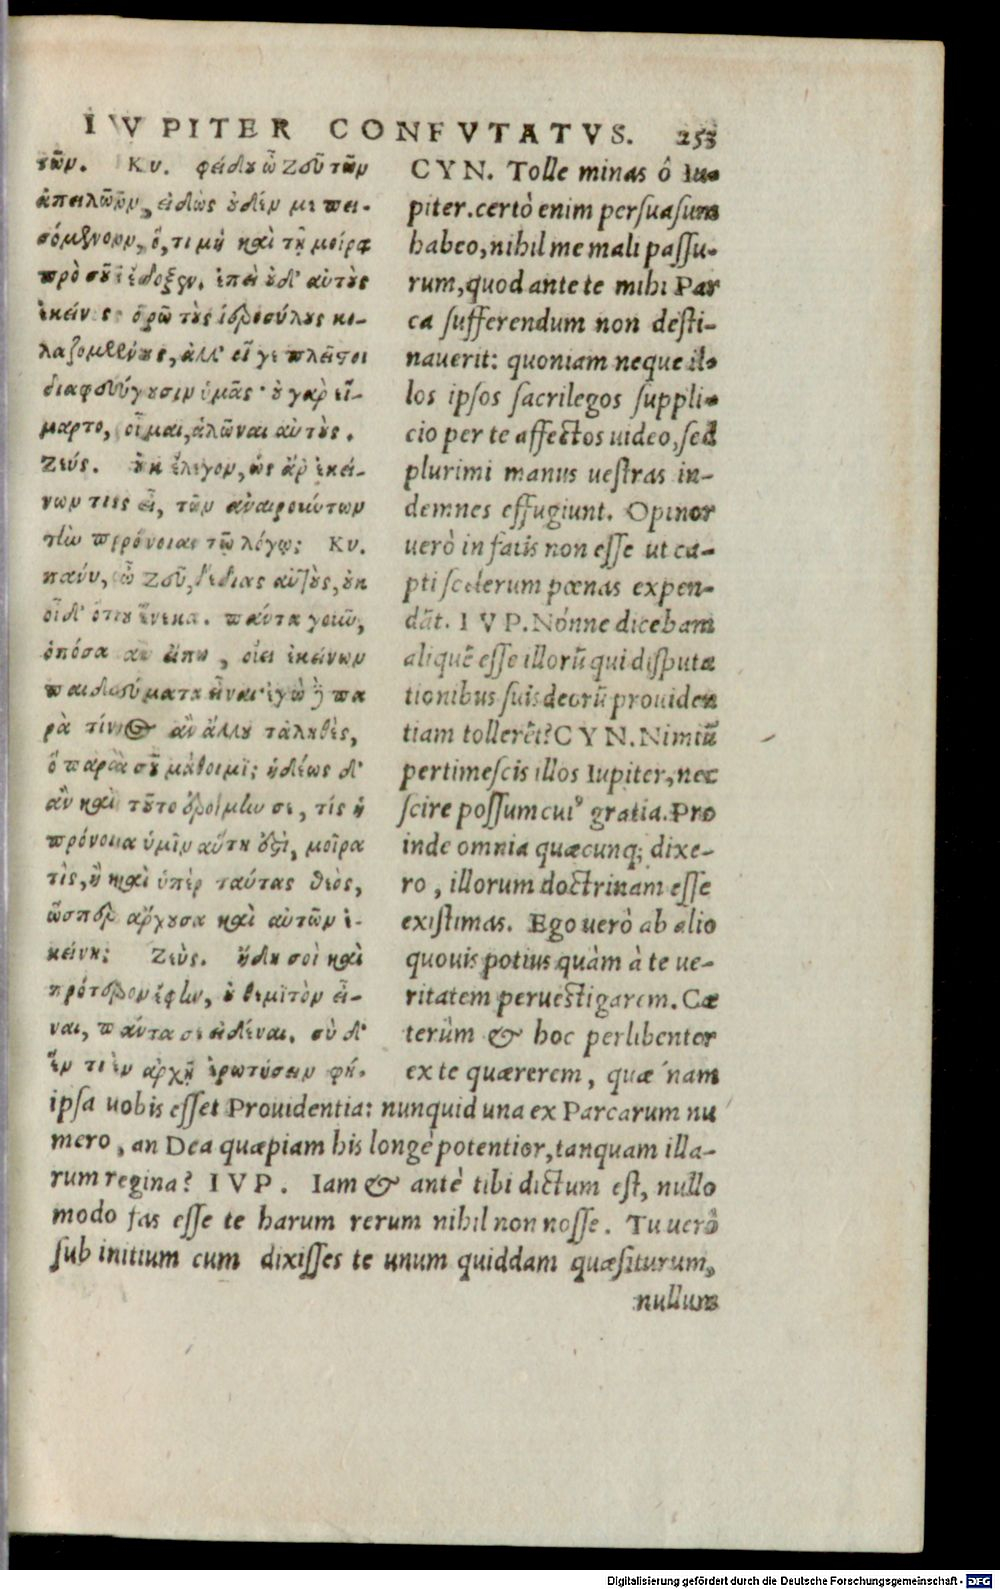 IVPITER CONFVTATVS. 253
τῶν. Κυ. φείδου ὦ Ζεῦ τῶν
ἀπειλῶν, εἰδὼς οὐδέν με πει-
σόμενον, ὅ, τι μὴ καὶ τῇ μοίρᾳ
πρὸ σοῦ ἔδοξεν. ἐπεὶ οὐδ' αὐτοὺς
ἐκείνους ὁρῶ τοὺς ἱεροσύλους κο-
λαζομένους, ἀλλ' εἴ γε πλεῖστοι
διαφεύγουσιν ὑμᾶς· οὐ γὰρ εἵ-
μαρτο, οἶμαι, ἁλῶναι αὐτούς.
Ζεύς. οὐκ ἔλεγον, ὡς ἄρ' ἐκεί-
νων τις εἶ, τῶν ἀναιρούντων
τὴν πρόνοιαν τῷ λόγῳ; Κυ.
πάνυ, ὦ Ζεῦ, δέδιας αὐτούς, οὐκ
οἶδ' ὅτου ἕνεκα. πάντα γοῦν,
ὁπόσα ἂν εἴπω, οἴει ἐκείνων
παιδεύματα εἶναι· ἐγὼ δὲ πα
ρὰ τίνος ἂν ἄλλου τἀληθὲς,
ὃ παρὰ σοῦ μάθοιμι; ἡδέως δ'
ἂν καὶ τοῦτο ἐροίμην σε, τίς ἡ
πρόνοια ὑμῖν αὕτη ἐστὶ, μοῖρα
τὶς, ἢ καὶ ὑπὲρ ταύτας θεὸς,
ὥσπερ ἄρχουσα καὶ αὐτῶν ἐ-
κείνη; Ζεύς. ἤδη σοὶ καὶ
πρότερον ἔφην, οὐ θεμιτὸν εἶ-
ναι, πάντα σε εἰδέναι. σὺ δ'
ἕν τι ἐν ἀρχῇ ἐρωτήσειν φή-
CYN. Tolle minas ô Iu-
piter. certò enim persuasum
habeo, nihil me mali passu-
rum, quod ante te mihi Par
ca sufferendum non desti-
nauerit: quoniam neque il-
los ipsos sacrilegos suppli-
cio per te affectos uideo, sed
plurimi manus uestras in-
demnes effugiunt. Opinor
uerò in fatis non esse ut ca-
pti scelerum pœnas expen-
dãt. IVP. Nónne dicebam
aliquẽ esse illorũ qui disputa
tionibus suis deorũ prouiden
tiam tollerẽt? CYN. Nimiũ
pertimescis illos Iupiter, nec
scire possum cuiꝰ gratia. Pro
inde omnia quæcunq; dixe-
ro, illorum doctrinam esse
existimas. Ego uerò ab alio
quouis potius quàm à te ue-
ritatem peruestigarem. Cæ
terùm & hoc perlibenter
ex te quærerem, quæ nam
ipsa uobis esset Prouidentia: nunquid una ex Parcarum nu
mero, an Dea quæpiam his longè potentior, tanquam illa-
rum regina? IVP. Iam & antè tibi dictum est, nullo
modo fas esse te harum rerum nihil non nosse. Tu uerò
sub initium cum dixisses te unum quiddam quæsiturum,
nullum
Digitalisierung gefördert durch die Deutsche Forschungsgemeinschaft - DFG